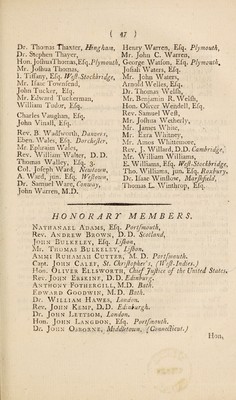 ( 47 )
Dr. Thomas Thaxter, Hingham,
Dr. Stephen Thayer,
Hon. Joshua Thomas, Esq. Plymouth,
Mr. Joshua Thomas,
I. Tiffany, Esq. West-Stockbridge,
Mr. Isaac Townsend,
John Tucker, Esq.
Mr. Edward Tuckerman,
William Tudor, Esq.
Charles Vaughan, Esq.
John Vinall, Esq.
Rev. B. Wadsworth, Danvers,
Eben. Wales, Esq. Dorchester,
Mr. Ephraim Wales,
Rev. William Walter, D. D.
Thomas Walley, Esq. 3.
Col. Joseph Ward, Newtown,
A. Ward, jun. Esq. Westown,
Dr. Samuel Ware, Conway,
John Warren, M.D.
Henry Warren, Esq. Plymouth,
Mr. John C. Warren,
George Watson, Esq. Plymouth,
Josiah Waters, Esq.
Mr. John Waters,
Arnold Welles, Esq.
Dr. Thomas Welsh,
Mr. Benjamin R. Welsh,
Hon. Oliver Wendell, Esq.
Rev. Samuel West,
Mr. Joshua Wetherly,
Mr. James White,
Mr. Ezra Whitney,
Mr. Amos Whittemore,
Rev. J. Willard, D.D. Cambridge,
Mr. William Williams,
E. Williams, Esq. West-Stockbridge,
Tho. Williams, jun. Esq. Roxbury.
Dr. Isaac Winslow, Marshfield,
Thomas L. Winthrop, Esq.
HONORARY MEMBERS.
NATHANAEL ADAMS, Esq. Portsmouth,
Rev. ANDREW BROWN, D. D. Scotland,
JOHN BULKELEY, Esq. Lisbon,
Mr. THOMAS BULKELEY, Lisbon,
AMMI RUHAMAH CUTTER, M. D. Portsmouth.
Capt. JOHN CALEF, St. Christopher's, (West-Indies.)
Hon. OLIVER ELLSWORTH, Chief Justice of the United States.
Rev. JOHN ERSKINE, D. D. Edinburg.
ANTHONY FOTHERGILL, M.D. Bath.
EDWARD GOODWIN, M.D. Bath.
Dr. WILLIAM HAWES, London.
Rev. JOHN KEMP, D.D. Edinburgh.
Dr. JOHN LETTSOM, London.
Hon. JOHN LANGDON, Esq. Portsmouth.
Dr. JOHN OSBORNE, Middletown, (Connecticut.)
Hon,